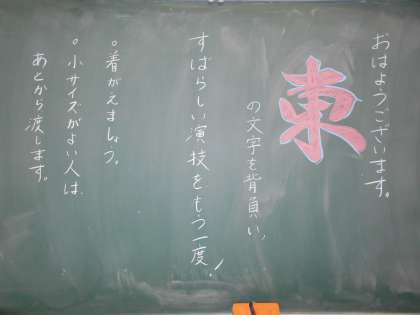 おはようございます。
東
の文字を背負い、
すばらしい演技をもう一度!
。着がえましょう。
。小サイズがよい人は、
あとから渡します。